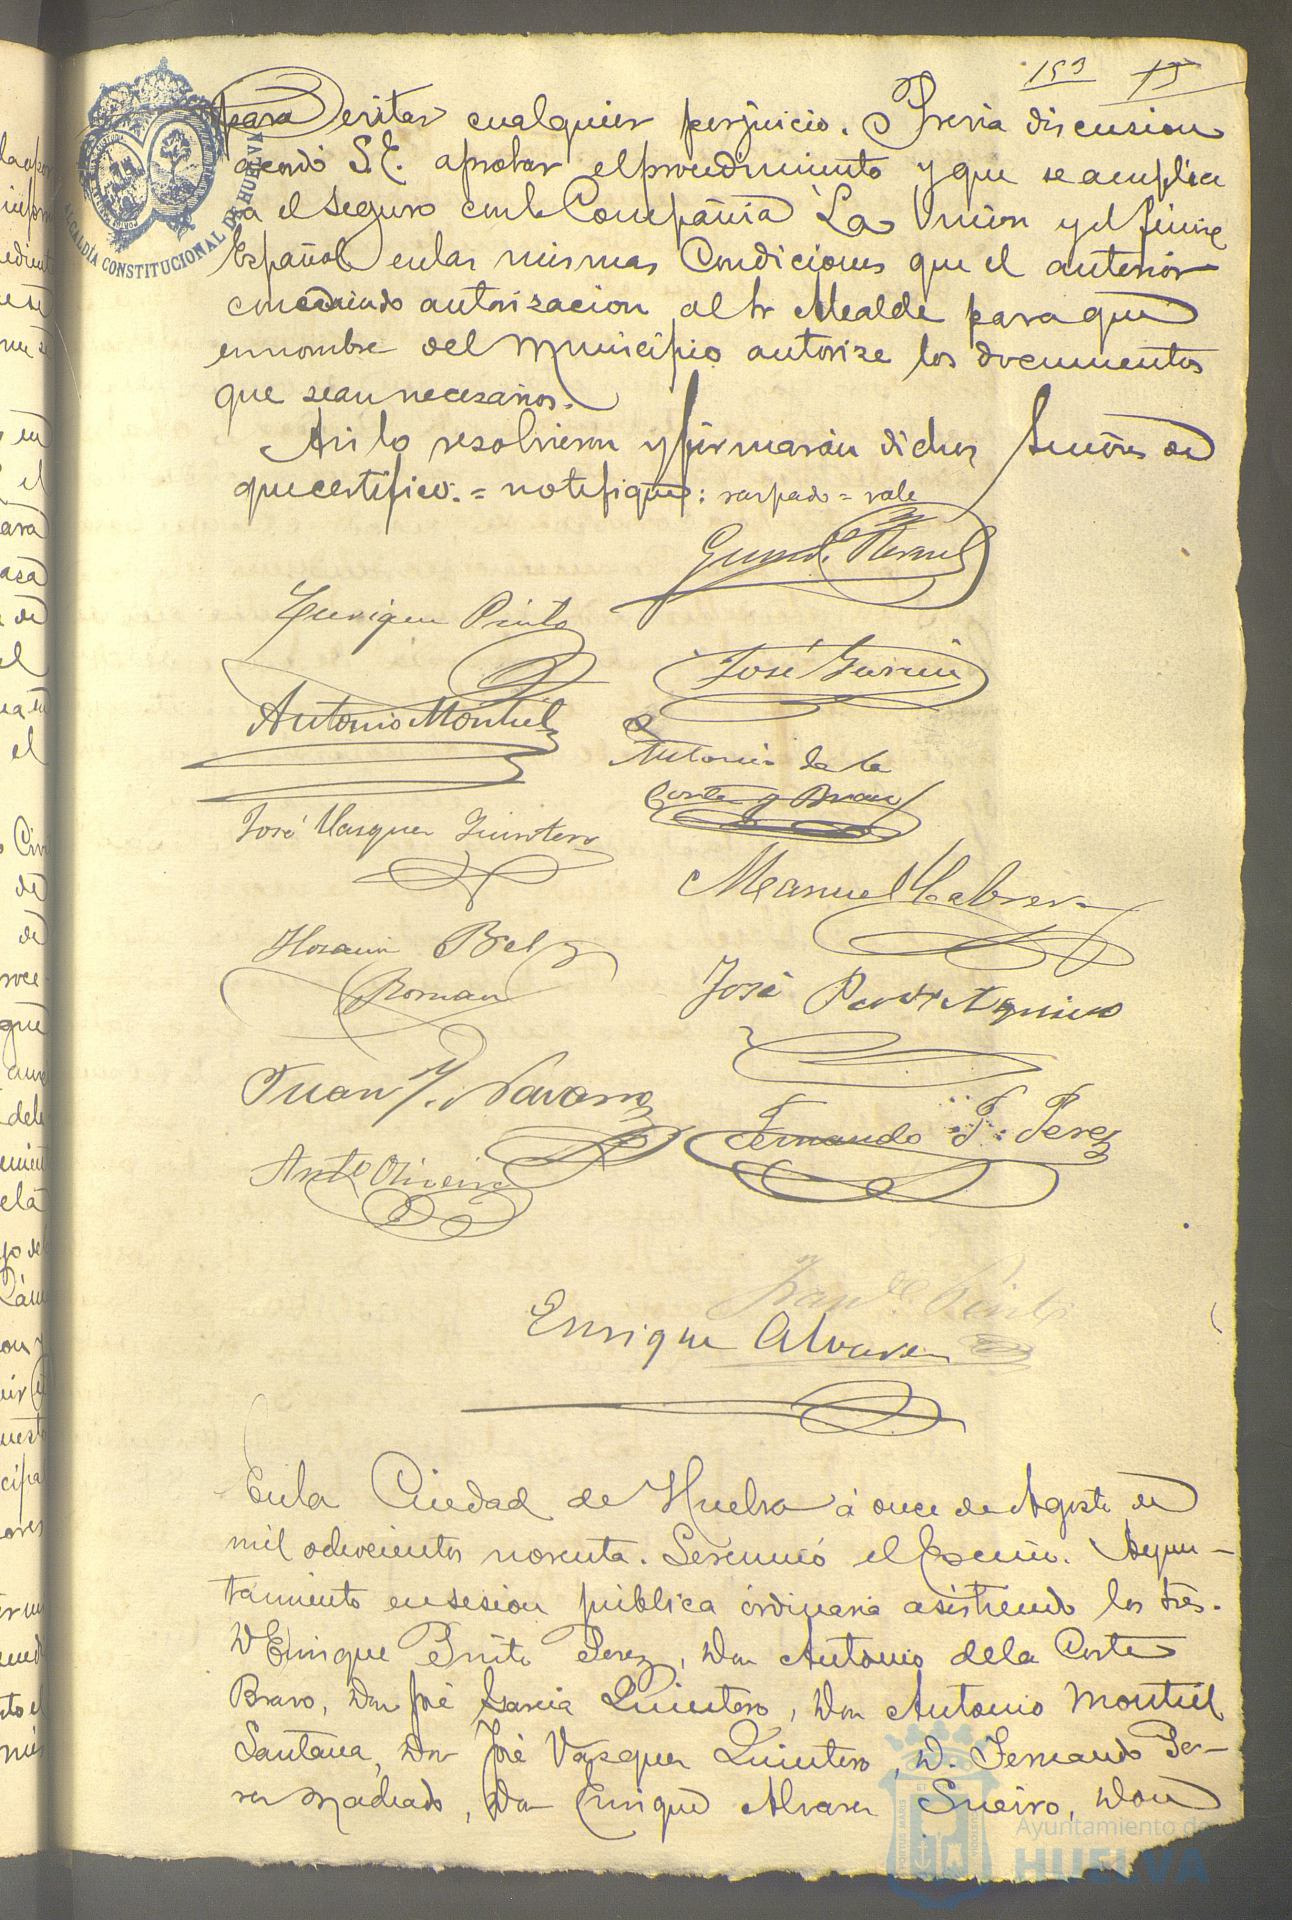 153 15
ALCALDÍA CONSTITUCIONAL DE HUELVA
para evitar cualquier perjuicio. Previa discusion
acordó S.E. aprobar el procedimiento y que se amplie
el Seguro con la Compañia La Union y el Fénix
Español en las mismas Condiciones que el anterior
concediendo autorizacion al Sr Alcalde para que
en nombre del Municipio autorize los documentos
que sean necesarios.
Asi lo resolvieron y firmarán dichos Señores de
que certifico. = notifique: raspado = vale
Enrique Pinto
José García
Antonio Montiel
Antonio de la
Corte y Bravo
José Vazquez Quintero
Manuel Cabrera
Horacio Bel y
Roman
José Aquino
Juan J. Navarro
Fernando P. Perez
Antº Oliveira
Enrique Alvarez
En la Ciudad de Huelva á once de Agosto de
mil ochocientos noventa. Se reunió el Excmo. Ayun-
tamiento en sesion pública órdinaria asistiendo los Sres.
D Enrique Pinto Perez, Don Antonio de la Corte
Bravo, Don José Garcia Quintero, Don Antonio Montiel
Santana, Don José Vazquez Quintero, D. Fernando Pe-
rez Machado, Don Enrique Alvarez Sueiro, Don
Ayuntamiento de
HUELVA